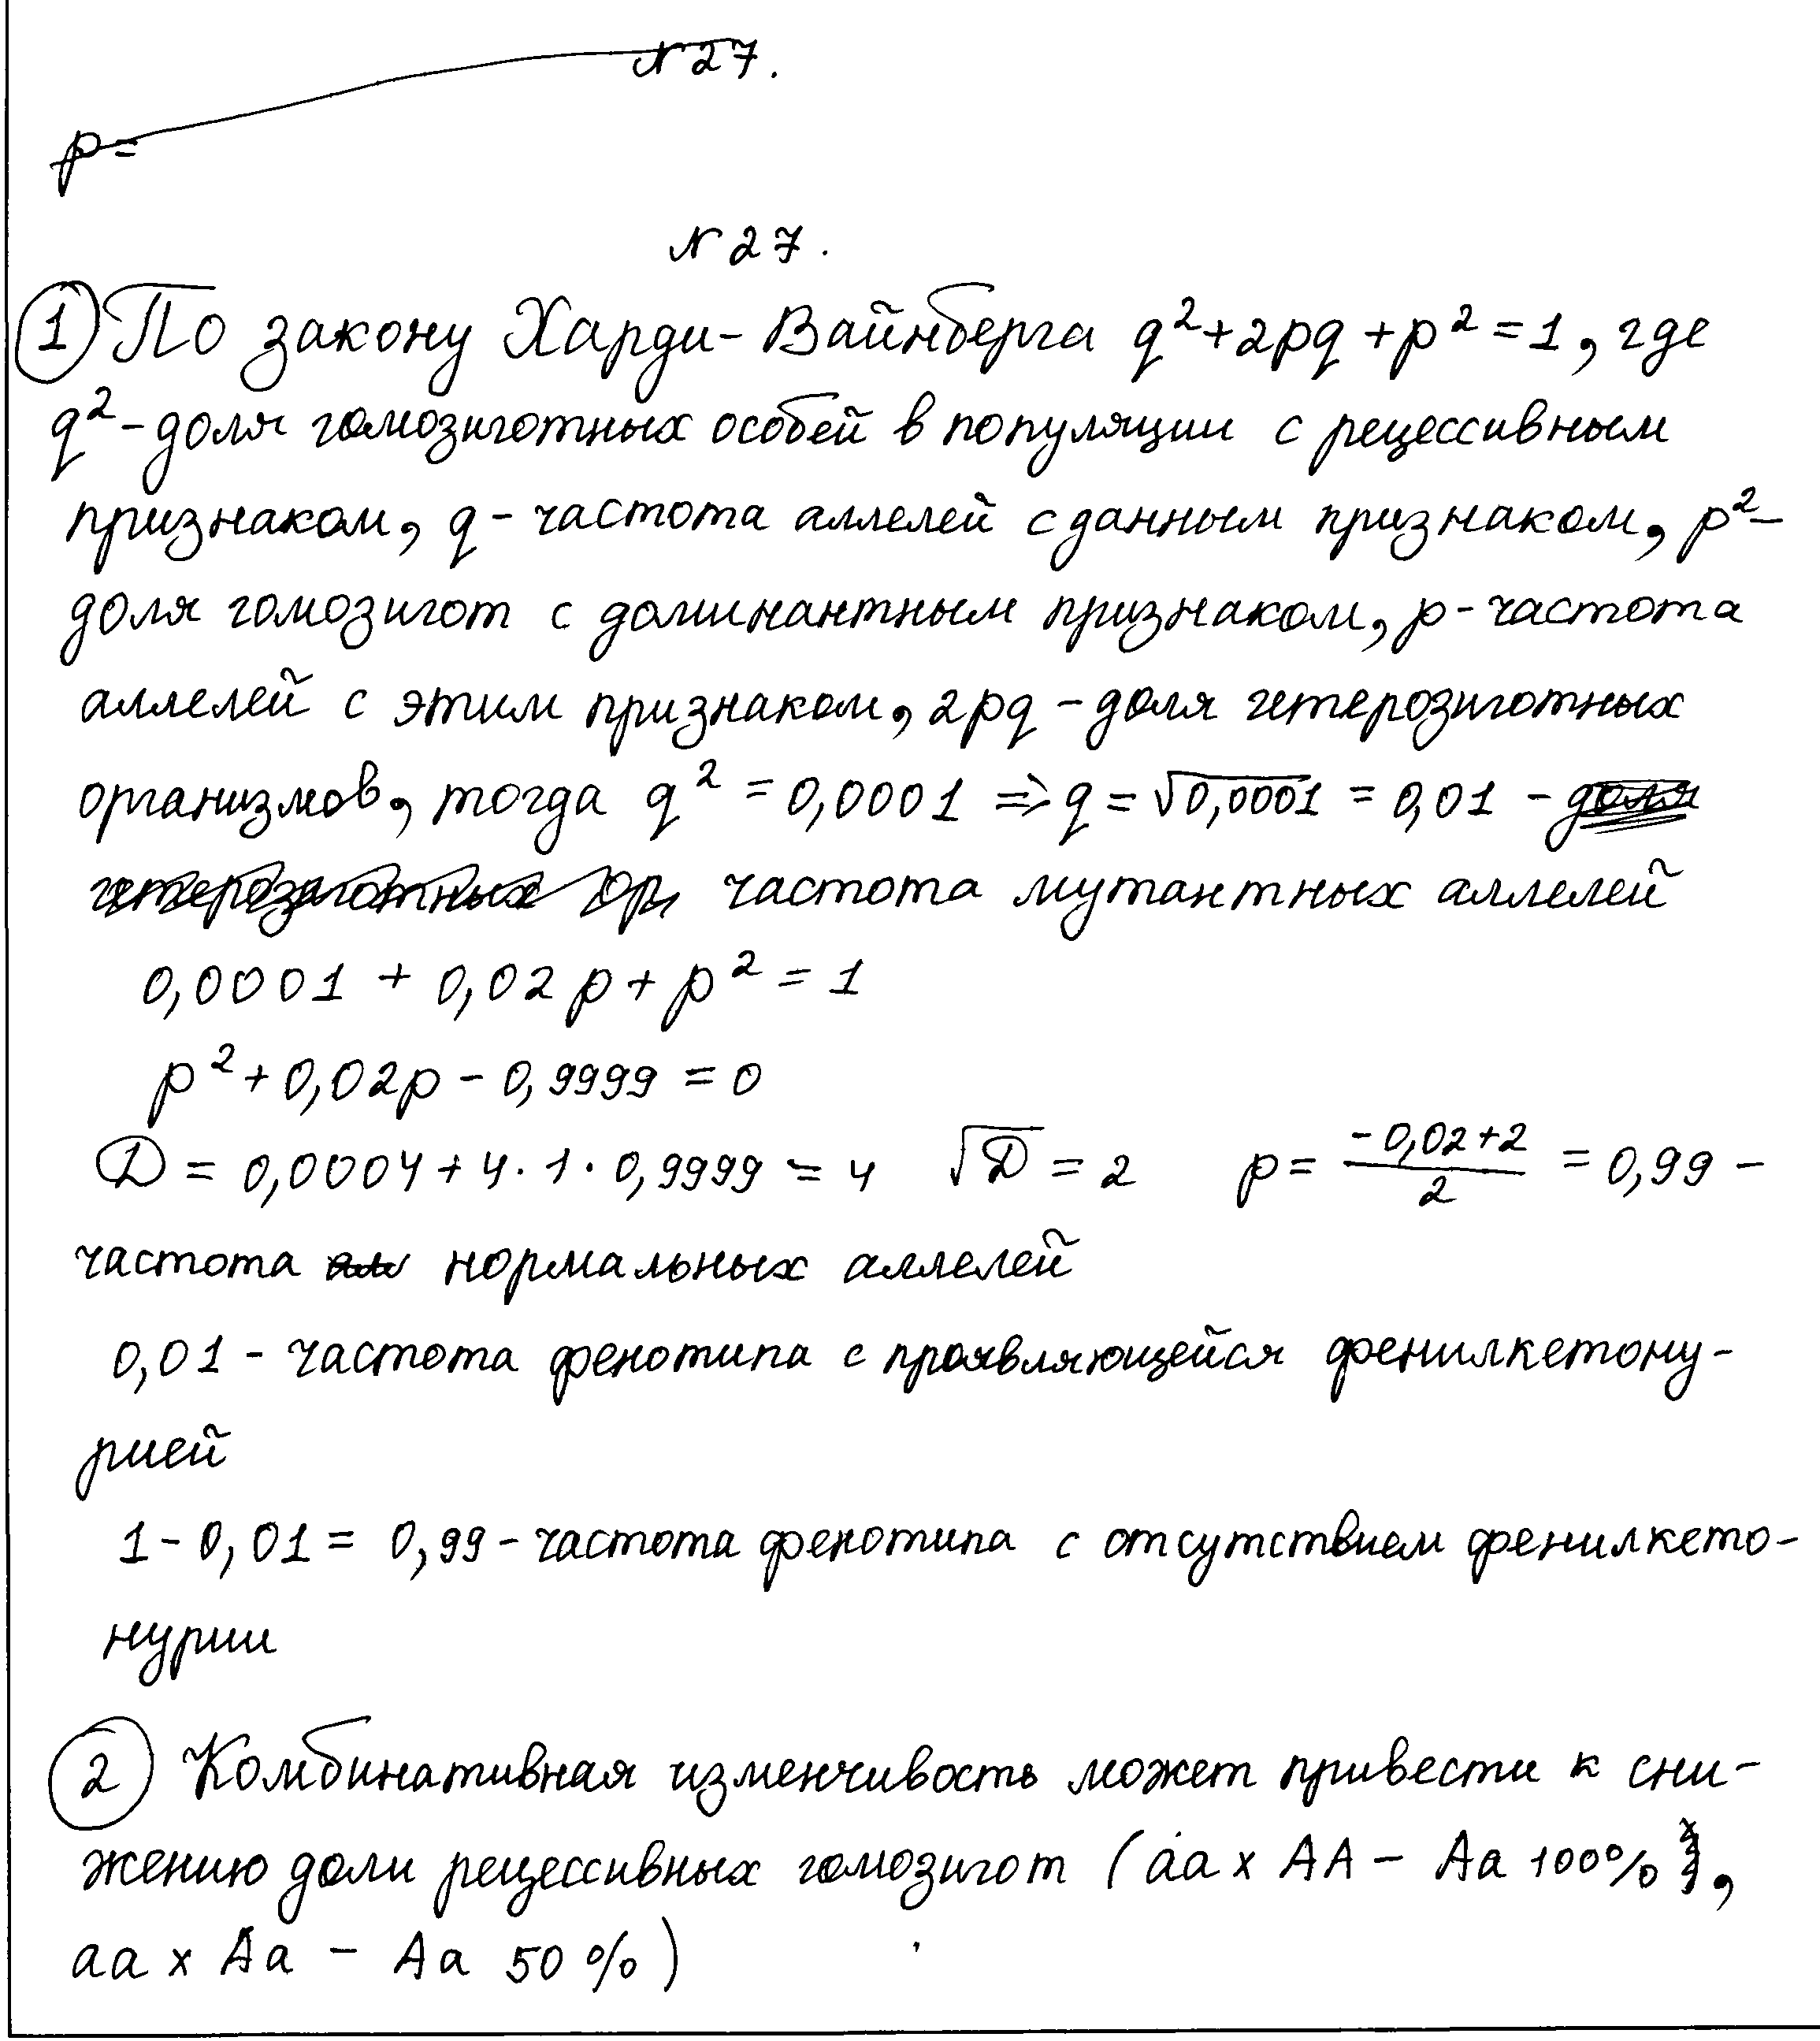 N27.
p=
N27.
1 По закону Харди-Вайнберга q²+2pq+p²=1, где
q²-доля гомозиготных особей в популяции с рецессивным
признаком, q-частота аллелей с данным признаком, p²-
доля гомозигот с доминантным признаком, p-частота
аллелей с этим признаком, 2pq-доля гетерозиготных
организмов, тогда q²=0,0001 => q=√0,0001=0,01 - доля
гетерозиготных ор частота мутантных аллелей
0,0001+0,02p+p²=1
p²+0,02p-0,9999=0
D=0,0004+4·1·0,9999=4 √D=2 p=(-0,02+2)/2=0,99-
частота нормальных аллелей
0,01-частота фенотипа с проявляющейся фенилкетону-
рией
1-0,01=0,99-частота фенотипа с отсутствием фенилкето-
нурии
2 Комбинативная изменчивость может привести к сни-
жению доли рецессивных гомозигот (аа х АА - Аа 100%,
аа х Аа - Аа 50%)